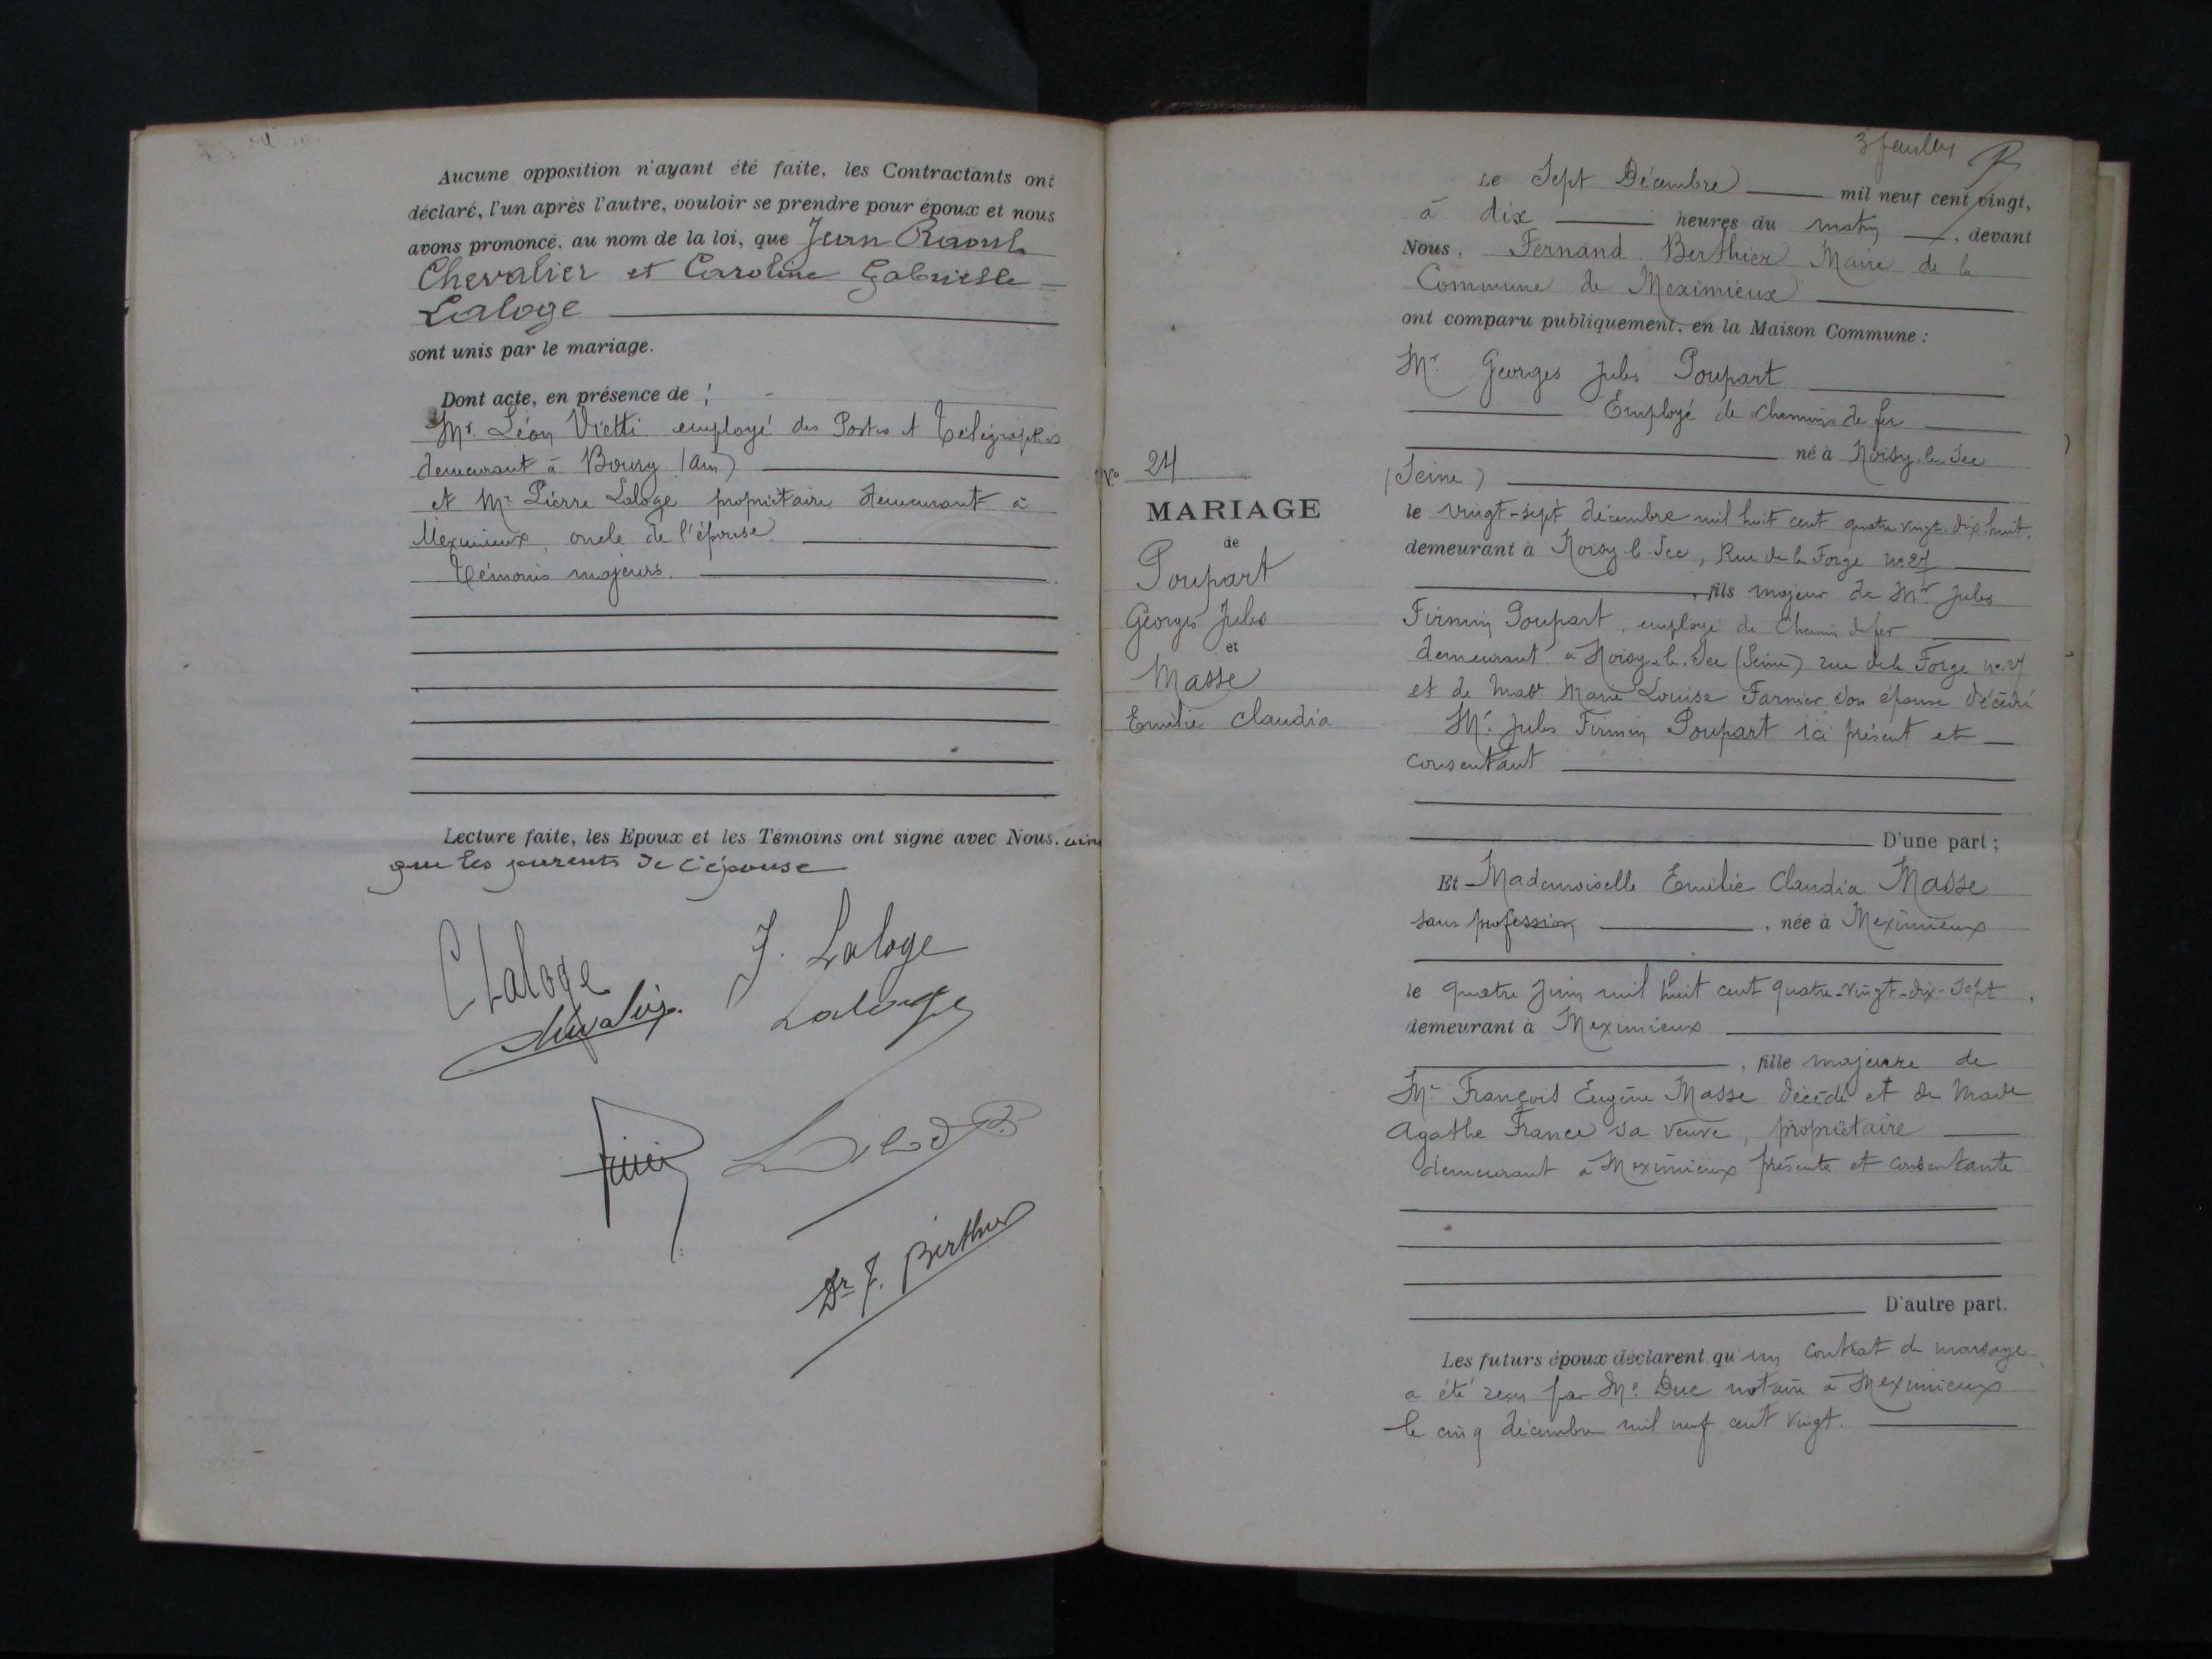 Aucune opposition n'ayant été faite, les Contractants ont
déclaré, l'un après l'autre, vouloir se prendre pour époux et nous
avons prononcé, au nom de la loi, que Jean Raoul
Chevalier et Caroline Gabrielle
Laloge
sont unis par le mariage.
Dont acte, en présence de :
Mr. Léon Vietti employé des Postes et Télégraphes
demeurant à Bourg (Ain)
et Mr Pierre Laloge propriétaire demeurant à
Meximieux, oncle de l'épouse.
Témoins majeurs.
Lecture faite, les Epoux et les Témoins ont signé avec Nous. ainsi
que les parents de l'épouse
C Laloge
J. Laloge
Chevalier
Laloge
Dr F. Berthier
3 feuillet
Le Sept Décembre mil neuf cent vingt,
à dix heures du matin, devant
Nous, Fernand Berthier Maire de la
Commune de Meximieux
ont comparu publiquement, en la Maison Commune :
Mr Georges Jules Poupart
Employé de chemins de fer
né à Noisy-le-Sec
(Seine)
le vingt-sept décembre mil huit cent quatre vingt dix huit,
demeurant à Noisy-le-Sec, Rue de la Forge no 27
, fils majeur de Mr Jules
Firmin Poupart, employé de Chemin de fer
demeurant à Noisy-le-Sec (Seine) rue de la Forge no 27
et de Made Marie Louise Farnier son épouse décédée
Mr Jules Firmin Poupart ici présent et
consentant
D'une part ;
Et Mademoiselle Emilie Claudia Masse
sans profession, née à Meximieux
le quatre Juin mil huit cent quatre-vingt-dix-sept,
demeurant à Meximieux
, fille majeure de
Mr François Eugène Masse décédé et de Made
Agathe France sa veuve, propriétaire
demeurant à Meximieux présente et consentante
D'autre part.
Les futurs époux déclarent qu'un contrat de mariage
a été reçu par Me Duc notaire à Meximieux
le cinq décembre mil neuf cent vingt.
No 24
MARIAGE
de
Poupart
Georges Jules
et
Masse
Emilie Claudia